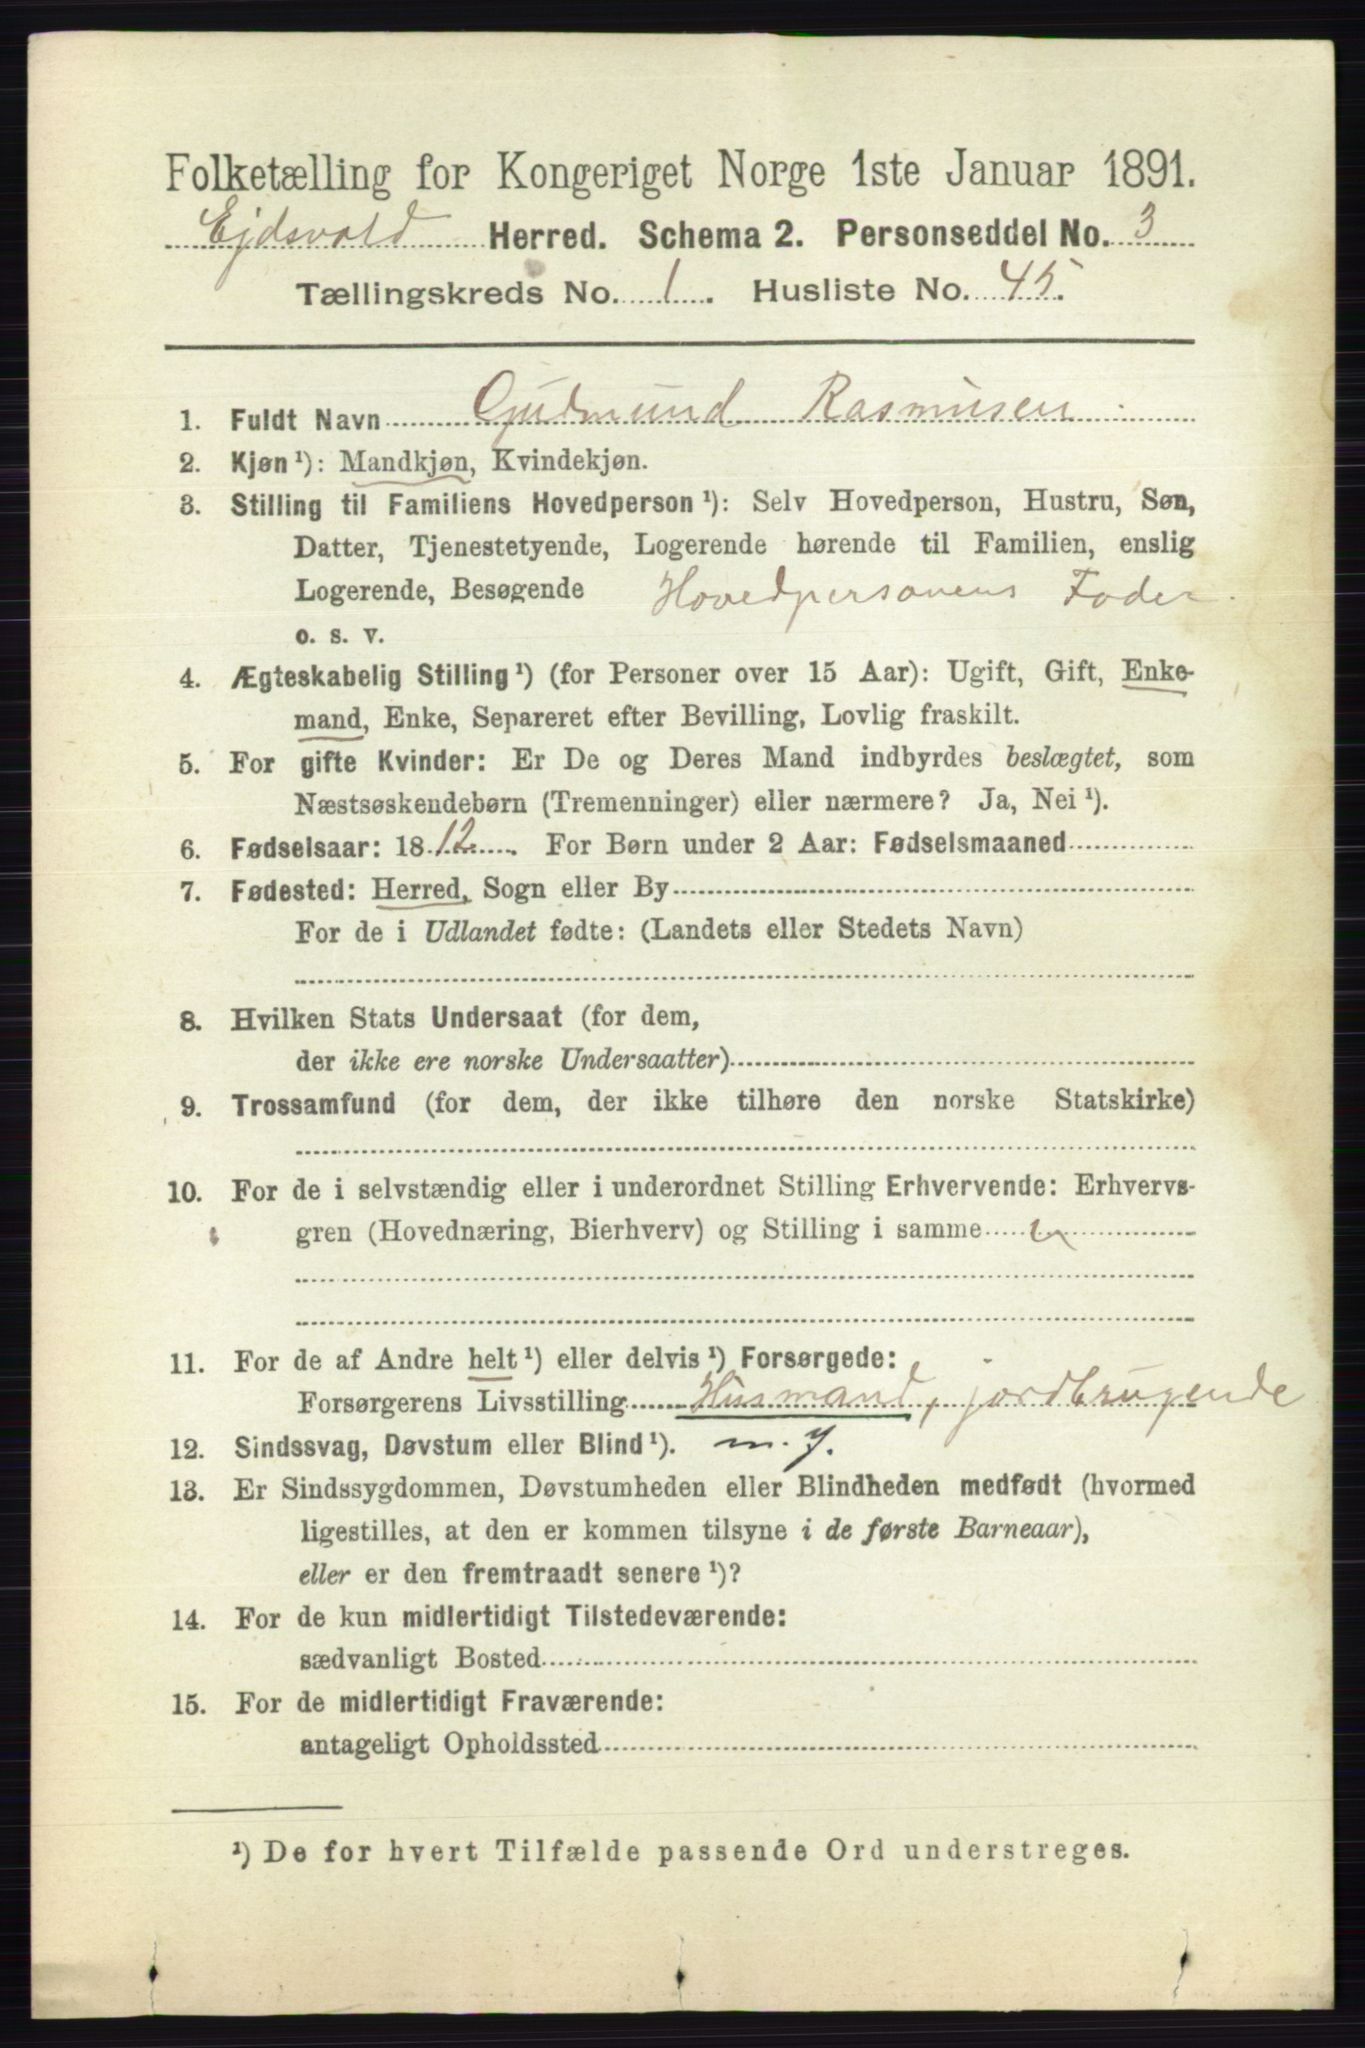 Folketælling for Kongeriget Norge 1ste Januar 1891.
Ejdsvold Herred. Schema 2. Personseddel No. 3
Tællingskreds No. 1. Husliste No. 45.
1. Fuldt Navn Gudmund Rasmusen
2. Kjøn ¹): Mandkjøn, Kvindekjøn.
3. Stilling til Familiens Hovedperson ¹): Selv Hovedperson, Hustru, Søn,
Datter, Tjenestetyende, Logerende hørende til Familien, enslig
Logerende, Besøgende Hovedpersonens Fader
o. s. v.
4. Ægteskabelig Stilling ¹) (for Personer over 15 Aar): Ugift, Gift, Enke-
mand, Enke, Separeret efter Bevilling, Lovlig fraskilt.
5. For gifte Kvinder: Er De og Deres Mand indbyrdes beslægtet, som
Næstsøskendebørn (Tremenninger) eller nærmere? Ja, Nei ¹).
6. Fødselsaar: 1812. For Børn under 2 Aar: Fødselsmaaned
7. Fødested: Herred, Sogn eller By
For de i Udlandet fødte: (Landets eller Stedets Navn)
8. Hvilken Stats Undersaat (for dem,
der ikke ere norske Undersaatter)
9. Trossamfund (for dem, der ikke tilhøre den norske Statskirke)
10. For de i selvstændig eller i underordnet Stilling Erhvervende: Erhvervs-
gren (Hovednæring, Bierhverv) og Stilling i samme
11. For de af Andre helt ¹) eller delvis ¹) Forsørgede:
Forsørgerens Livsstilling Husmand, jordbrugende
12. Sindssvag, Døvstum eller Blind ¹).
13. Er Sindssygdommen, Døvstumheden eller Blindheden medfødt (hvormed
ligestilles, at den er kommen tilsyne i de første Barneaar),
eller er den fremtraadt senere ¹)?
14. For de kun midlertidigt Tilstedeværende:
sædvanligt Bosted
15. For de midlertidigt Fraværende:
antageligt Opholdssted
¹) De for hvert Tilfælde passende Ord understreges.